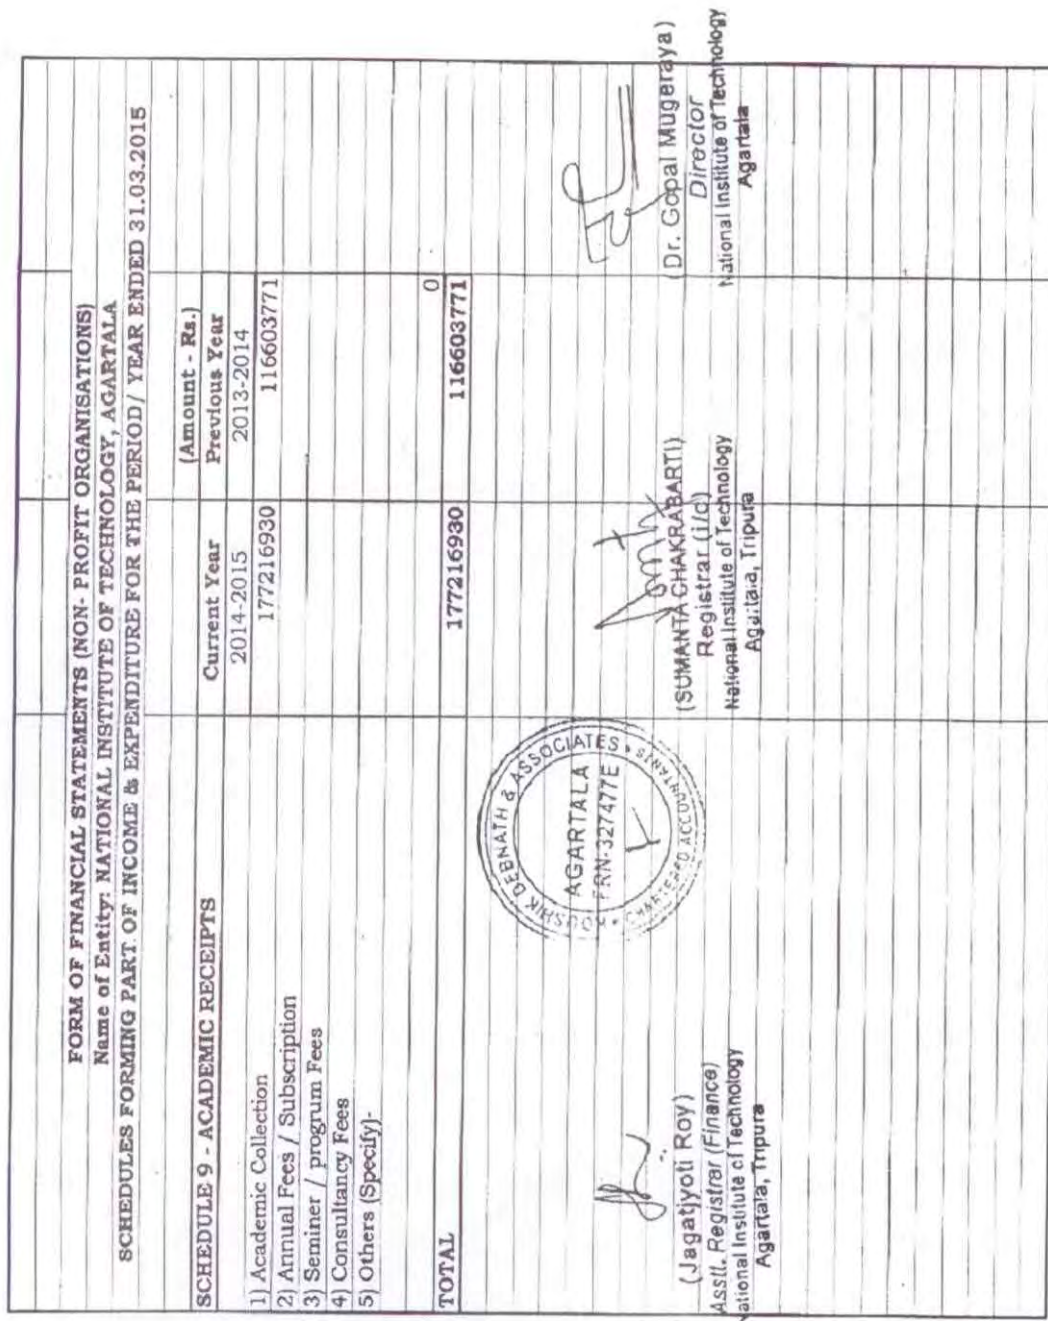 FORM OF FINANCIAL STATEMENTS (NON- PROFIT ORGANISATIONS)
Name of Entity: NATIONAL INSTITUTE OF TECHNOLOGY, AGARTALA
SCHEDULES FORMING PART OF INCOME & EXPENDITURE FOR THE PERIOD/ YEAR ENDED 31.03.2015
(Amount - Rs.)
SCHEDULE 9 - ACADEMIC RECEIPTS Current Year Previous Year
2014-2015 2013-2014
1) Academic Collection 177216930 116603771
2) Annual Fees / Subscription
3) Seminer / progrum Fees
4) Consultancy Fees
5) Others (Specify)-
0
TOTAL 177216930 116603771
KOUSHIK DEBNATH & ASSOCIATES
AGARTALA
FRN-327477E
CHARTERED ACCOUNTANTS
(Jagatjyoti Roy)
Asstt. Registrar (Finance)
National Institute of Technology
Agartala, Tripura
(SUMANTA CHAKRABARTI)
Registrar (i/c)
National Institute of Technology
Agartala, Tripura
(Dr. Gopal Mugeraya)
Director
National Institute of Technology
Agartala